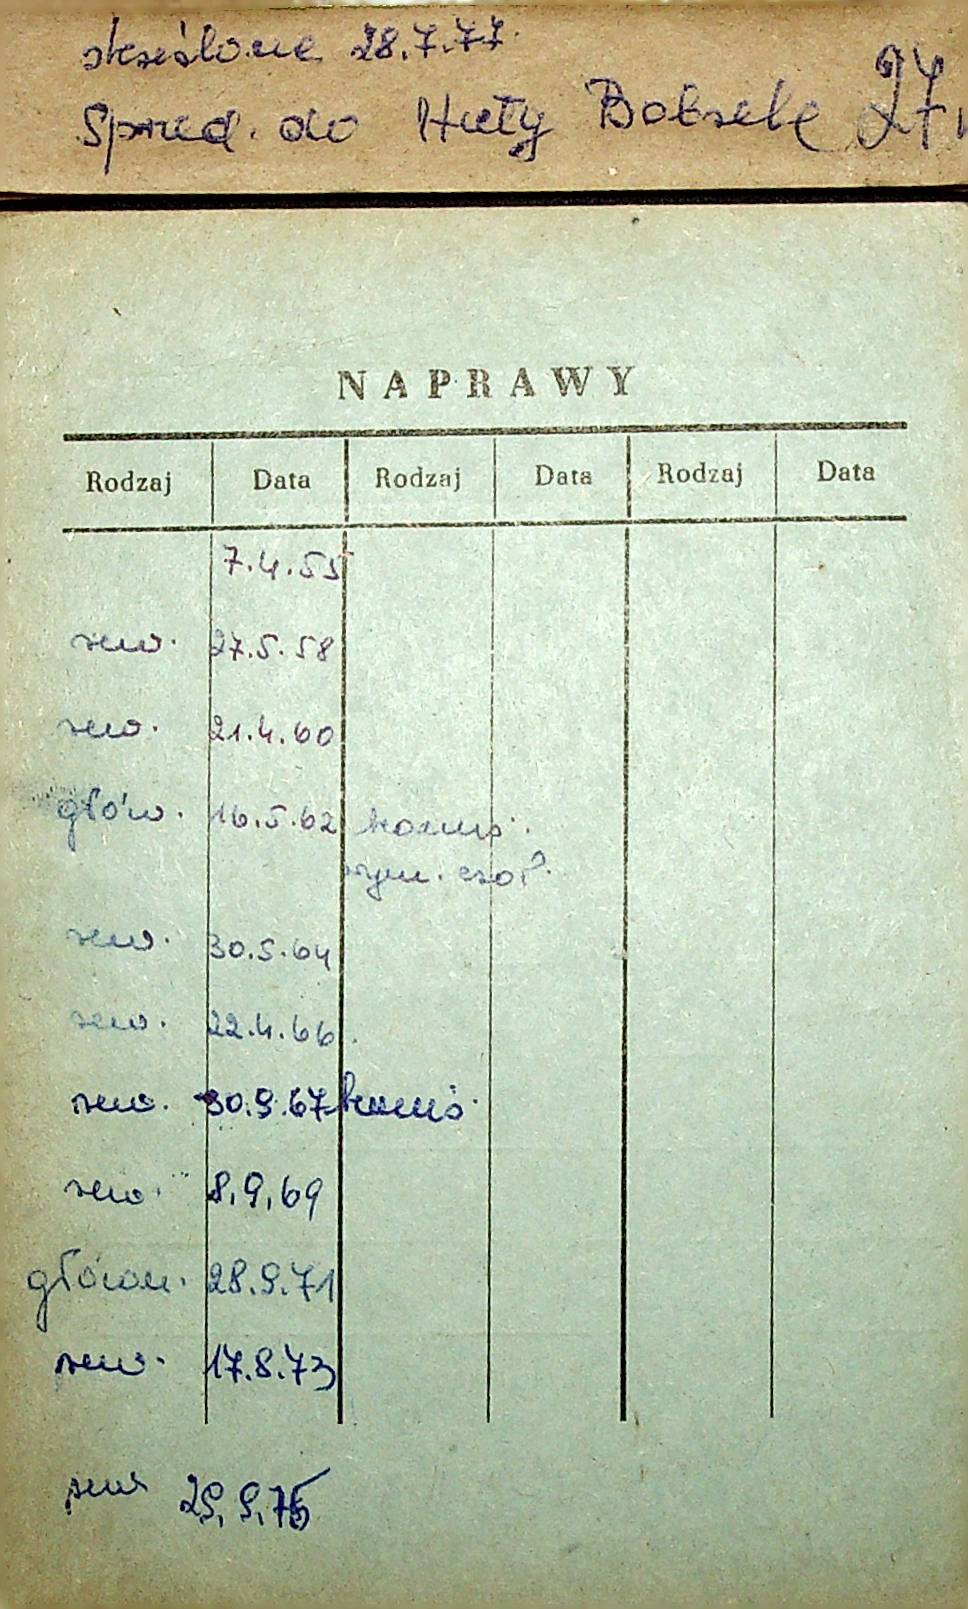 skreślone 28.7.77.
Sprzed. do Huty Bobrek 27
NAPRAWY
Rodzaj Data Rodzaj Data Rodzaj Data
7.4.55
rew. 27.5.58
rew. 21.4.60
głów. 16.5.62
rew. 30.5.64
rew. 22.4.66.
rew. 30.9.67
rew. 8.9.69
główn. 28.9.71
rew. 17.8.73
rew 29.9.75